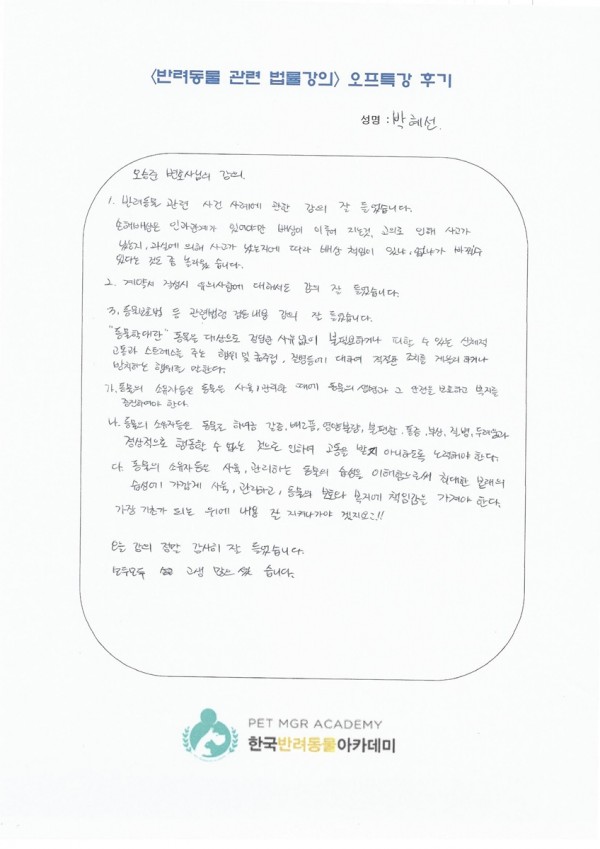 <반려동물 관련 법률강의> 오프특강 후기
성명 : 박혜선
변호사님의 강의.
1. 반려동물 관련 사건 사례에 관한 강의 잘 들었습니다.
손해배상은 인과관계가 있어야만 배상이 이루어 지는것, 고의로 인해 사고가
났는지, 과실에 의해 사고가 났는지에 따라 배상 책임이 있냐, 없냐가 바뀔수
있다는 것도 좀 놀라웠 습니다.
2. 계약서 작성시 유의사항에 대해서도 강의 잘 들었습니다.
3. 동물보호법 등 관련법령 검토내용 강의 잘 들었습니다.
"동물학대란" 동물을 대상으로 정당한 사유 없이 불필요하거나 피할 수 있는 신체적
고통과 스트레스를 주는 행위 및 굶주림, 질병등에 대하여 적절한 조치를 게을리 하거나
방치하는 행위를 말한다.
가. 동물의 소유자등은 동물을 사육,관리할 때에 동물의 생명과 그 안전을 보호하고 복지를
증진하여야 한다.
나. 동물의 소유자등은 동물로 하여금 갈증, 배고픔, 영양불량, 불편함, 통증, 부상, 질병, 두려움과
정상적으로 행동할 수 없는 것으로 인하여 고통을 받지 아니하도록 노력해야 한다.
다. 동물의 소유자등은 사육, 관리하는 동물의 습성을 이해함으로써 최대한 본래의
습성에 가깝게 사육, 관리하고, 동물의 보호와 복지에 책임감을 가져야 한다.
가장 기초가 되는 위에 내용 잘 지켜나가야 겠지요~!!
모든 강의 정말 감사히 잘 들었습니다.
모두모두 고생 많으 셨 습니다.
PET MGR ACADEMY
한국반려동물아카데미